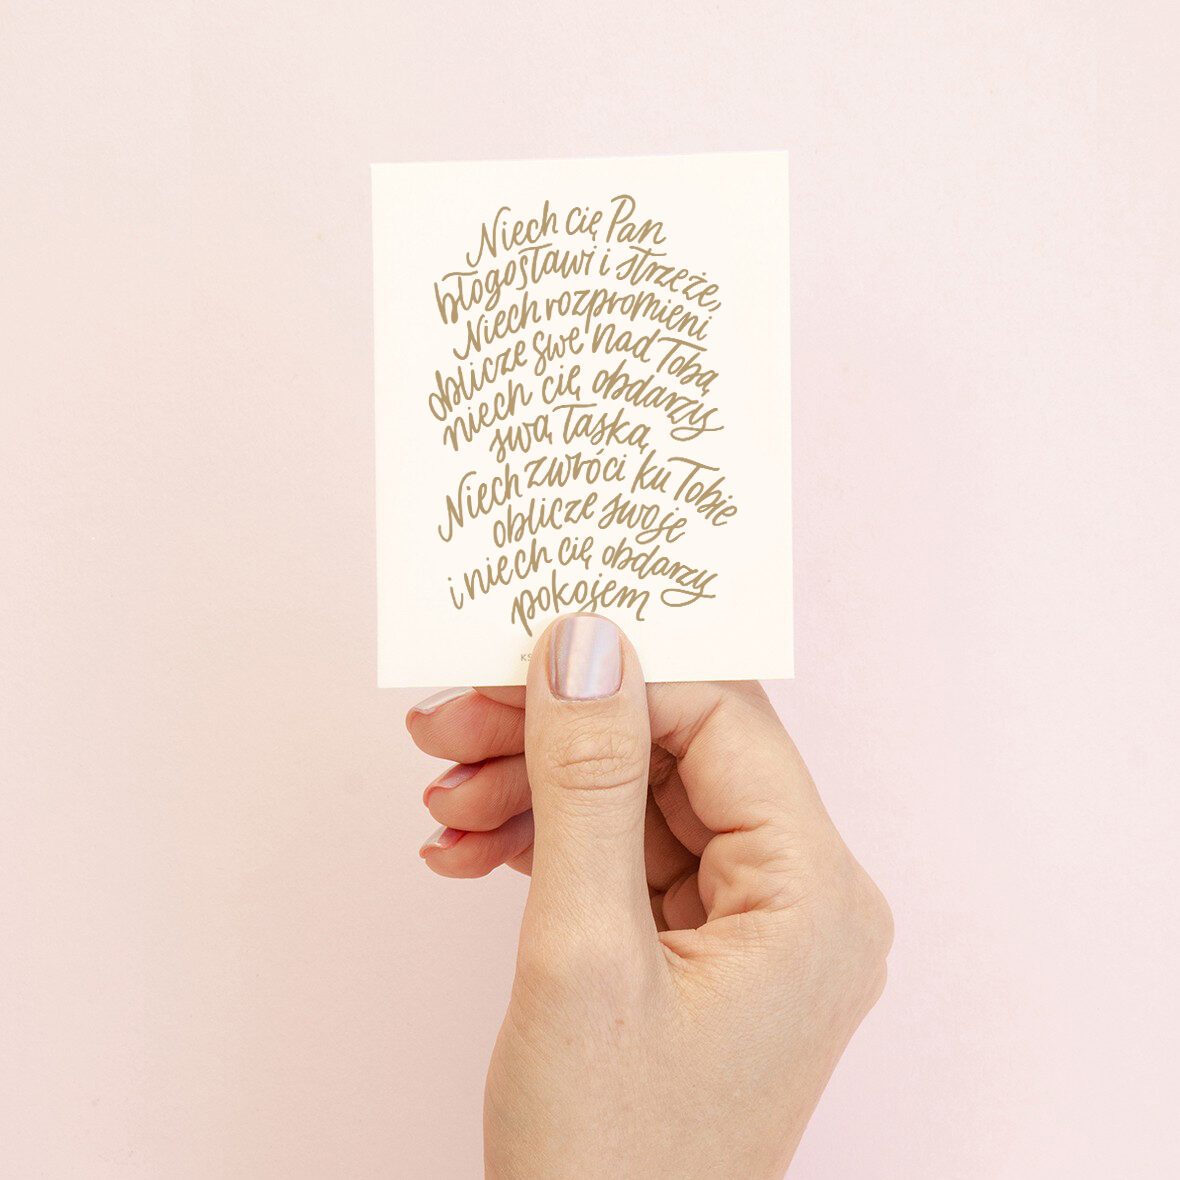 Niech cię Pan
błogosławi i strzeże,
Niech rozpromieni
oblicze swe nad Tobą
niech cię obdarzy
swą łaską
Niech zwróci ku Tobie
oblicze swoje
i niech cię obdarzy
pokojem